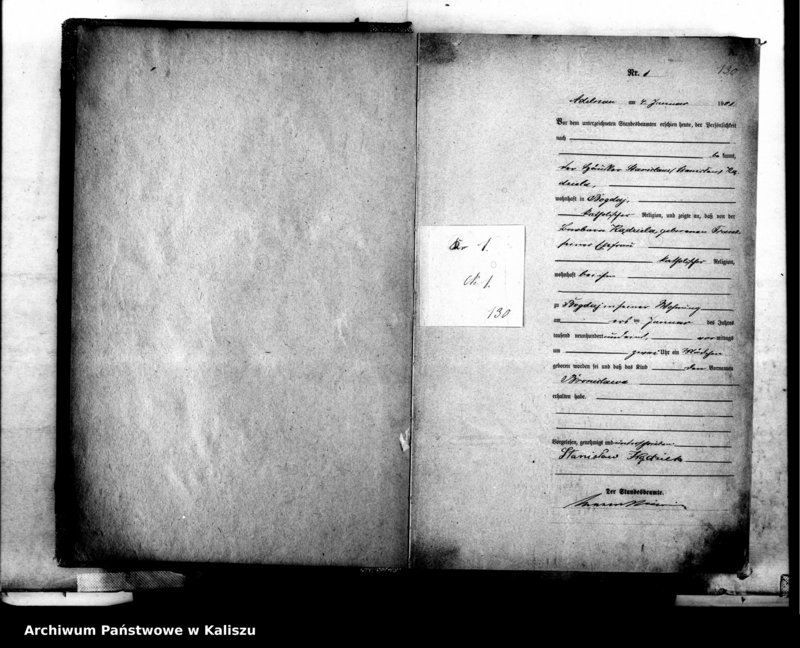 Nr. 1
130
Adelnau am 4. Januar 1901
Vor dem unterzeichneten Standesbeamten erschien heute, der Persönlichkeit
nach
be kannt,
der Häusler Stanislaus
wohnhaft in Bogdaj,
katholischer Religion, und zeigte an, daß von der
Kędziela, geborenen
seiner Ehefrau
katholischer Religion,
wohnhaft bei ihm
zu Bogdaj in seiner Wohnung
am ersten Januar des Jahres
tausend neunhundert und eins, vor mittags
um zwei Uhr ein Mädchen
geboren worden sei und daß das Kind den Vornamen
Bronislawa
erhalten habe.
Vorgelesen, genehmigt und unterschrieben.
Stanisław
Der Standesbeamte.
Nr 1.
N. 1.
130
Archiwum Państwowe w Kaliszu